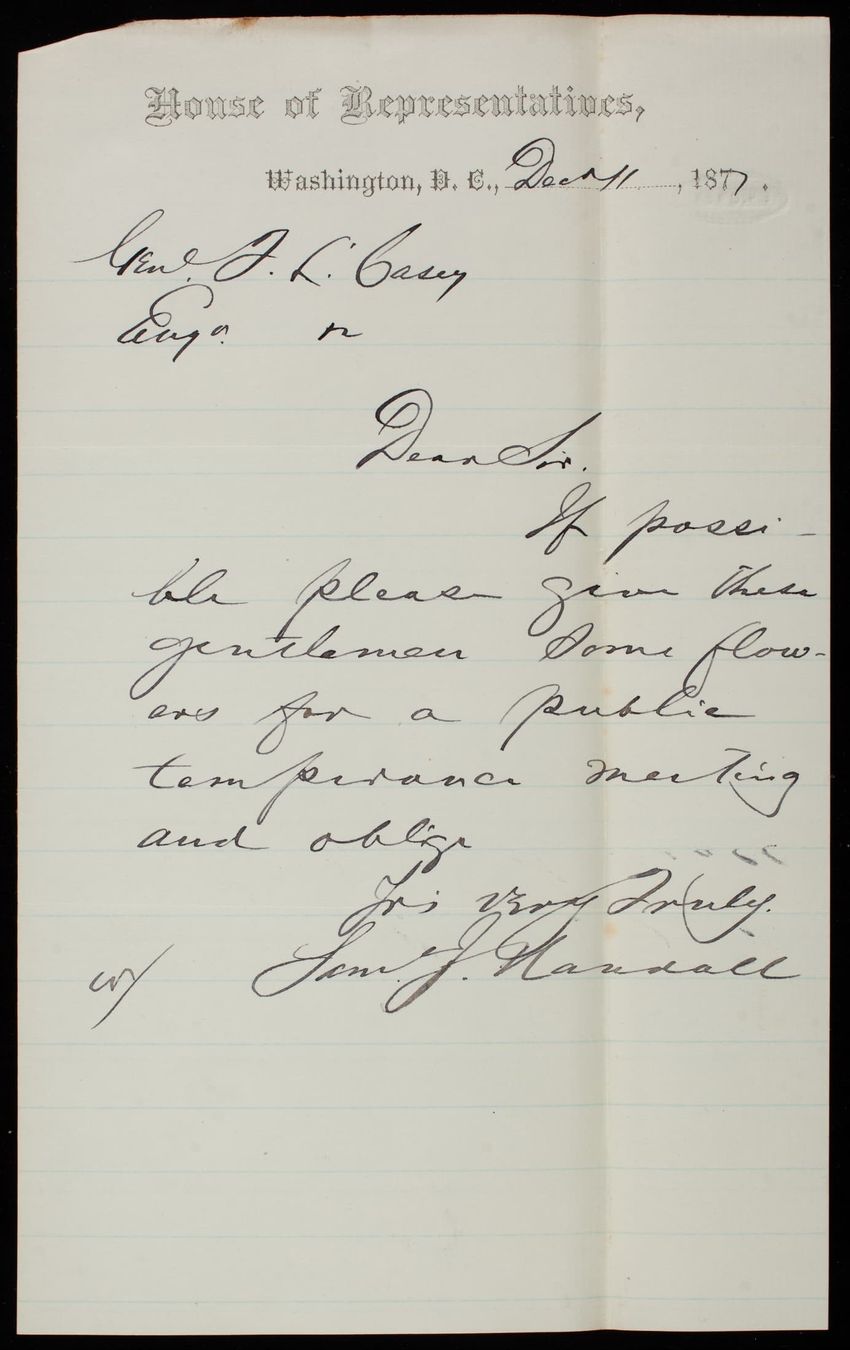 House of Representatives,
Washington, D. C., Decr 11, 1877.
Genl. T. L. Casey
Engr.
Dear Sir.
If possi-
ble please give these
gentlemen some flow-
ers for a public
temperance meeting
and oblige
Yrs very Truly.
Saml. J. Randall